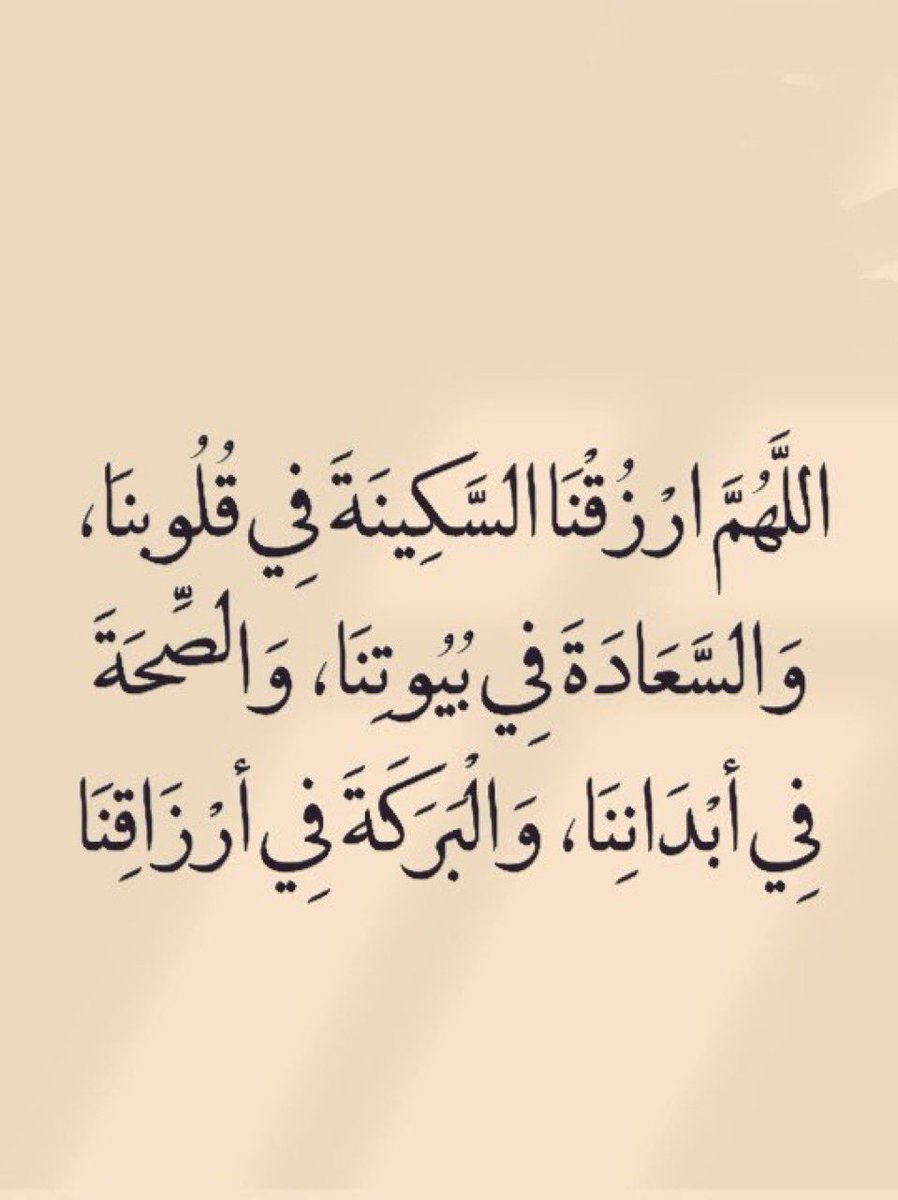 اللَّهُمَّ ارْزُقْنَا السَّكِينَةَ فِي قُلُوبنَا،
وَالسَّعَادَةَ فِي بُيُوتِنَا، وَالصِّحَةَ
فِي أبْدَانِنَا، وَالْبَرَكَةَ فِي أرْزَاقِنَا